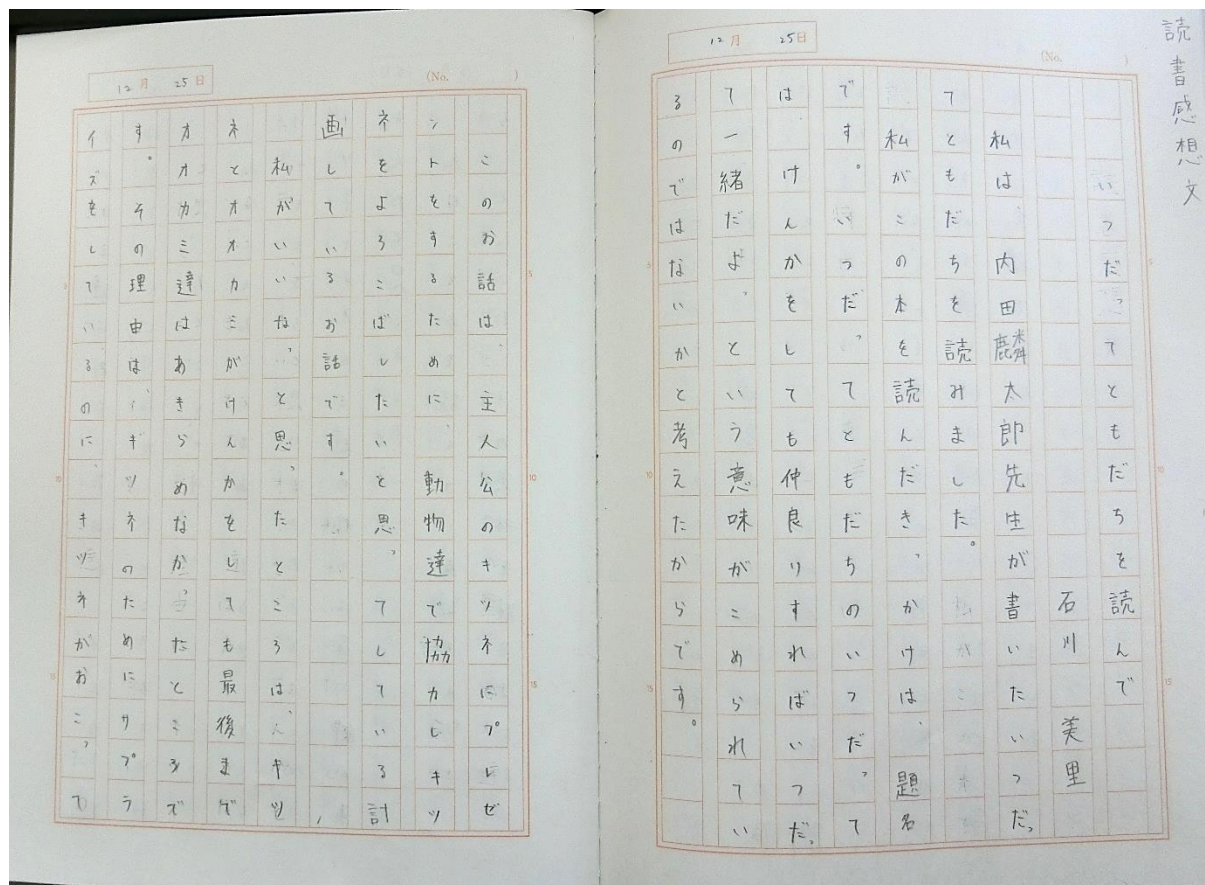 読書感想文
12月 25日
(No. )
いつだってともだちを読んで
石川 美里
私は、内田麟太郎先生が書いたいつだっ
てともだちを読みました。
私がこの本を読んだきっかけは、題名
です。いつだってともだちのいつだって
はけんかをしても仲良りすればいつだっ
て一緒だよ、という意味がこめられてい
るのではないかと考えたからです。
12月 25日
(No. )
このお話は、主人公のキツネにプレゼ
ントをするために、動物達で協力しキツ
ネをよろこばしたいと思ってしている計
画しているお話です。
私がいいなっと思ったところは、キツ
ネとオオカミがけんかをしても最後まで
オオカミ達はあきらめなかったところで
す。その理由は、ギツネのためにサプラ
イズをしているのに、キツネがおこって